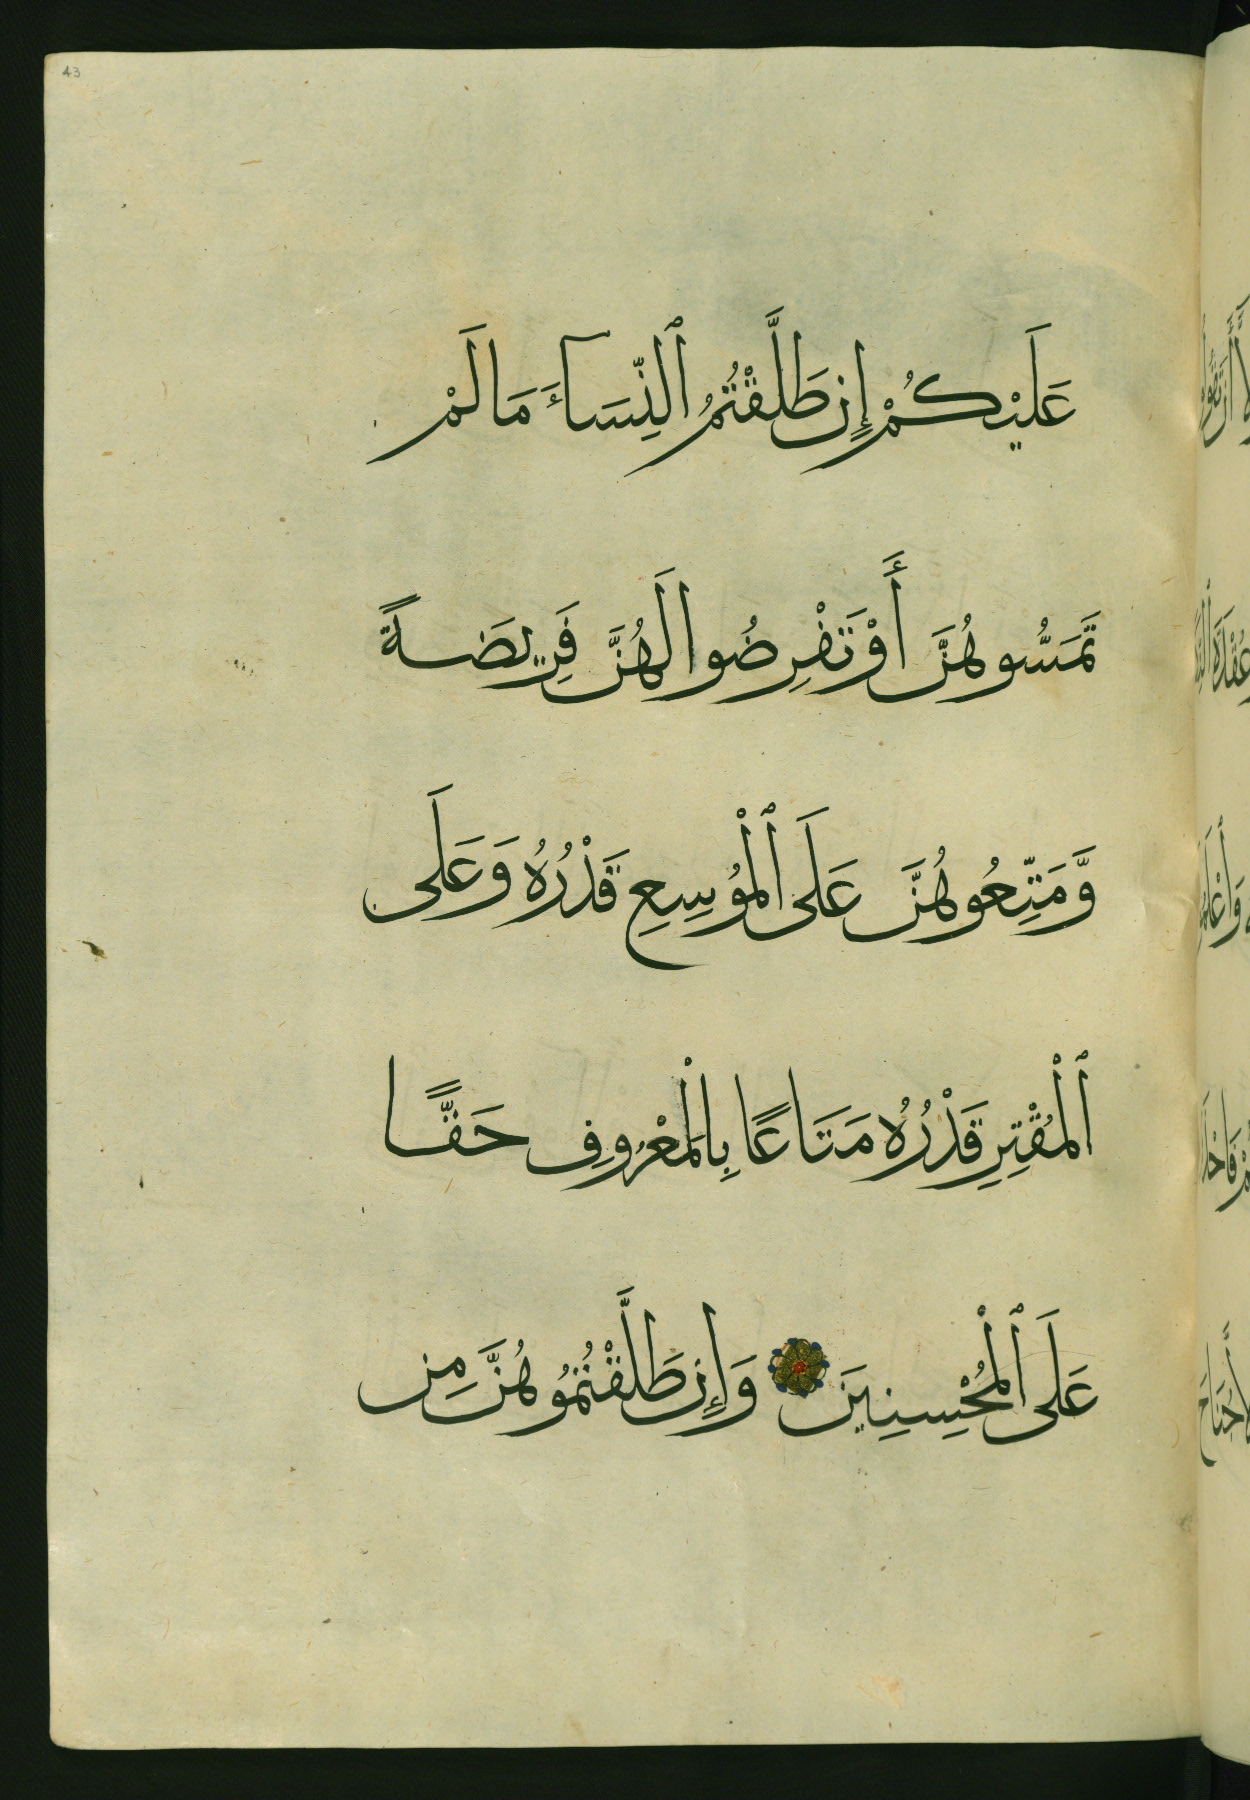 43
عَلَيْكُمْ إِن طَلَّقْتُمُ ٱلنِّسَآءَ مَا لَمْ
تَمَسُّوهُنَّ أَوْ تَفْرِضُوا لَهُنَّ فَرِيضَةً
وَّمَتِّعُوهُنَّ عَلَى ٱلْمُوسِعِ قَدْرُهُ وَعَلَى
ٱلْمُقْتِرِ قَدْرُهُ مَتَاعًا بِالْمَعْرُوفِ حَقًّا
عَلَى ٱلْمُحْسِنِينَ وَإِن طَلَّقْتُمُوهُنَّ مِن